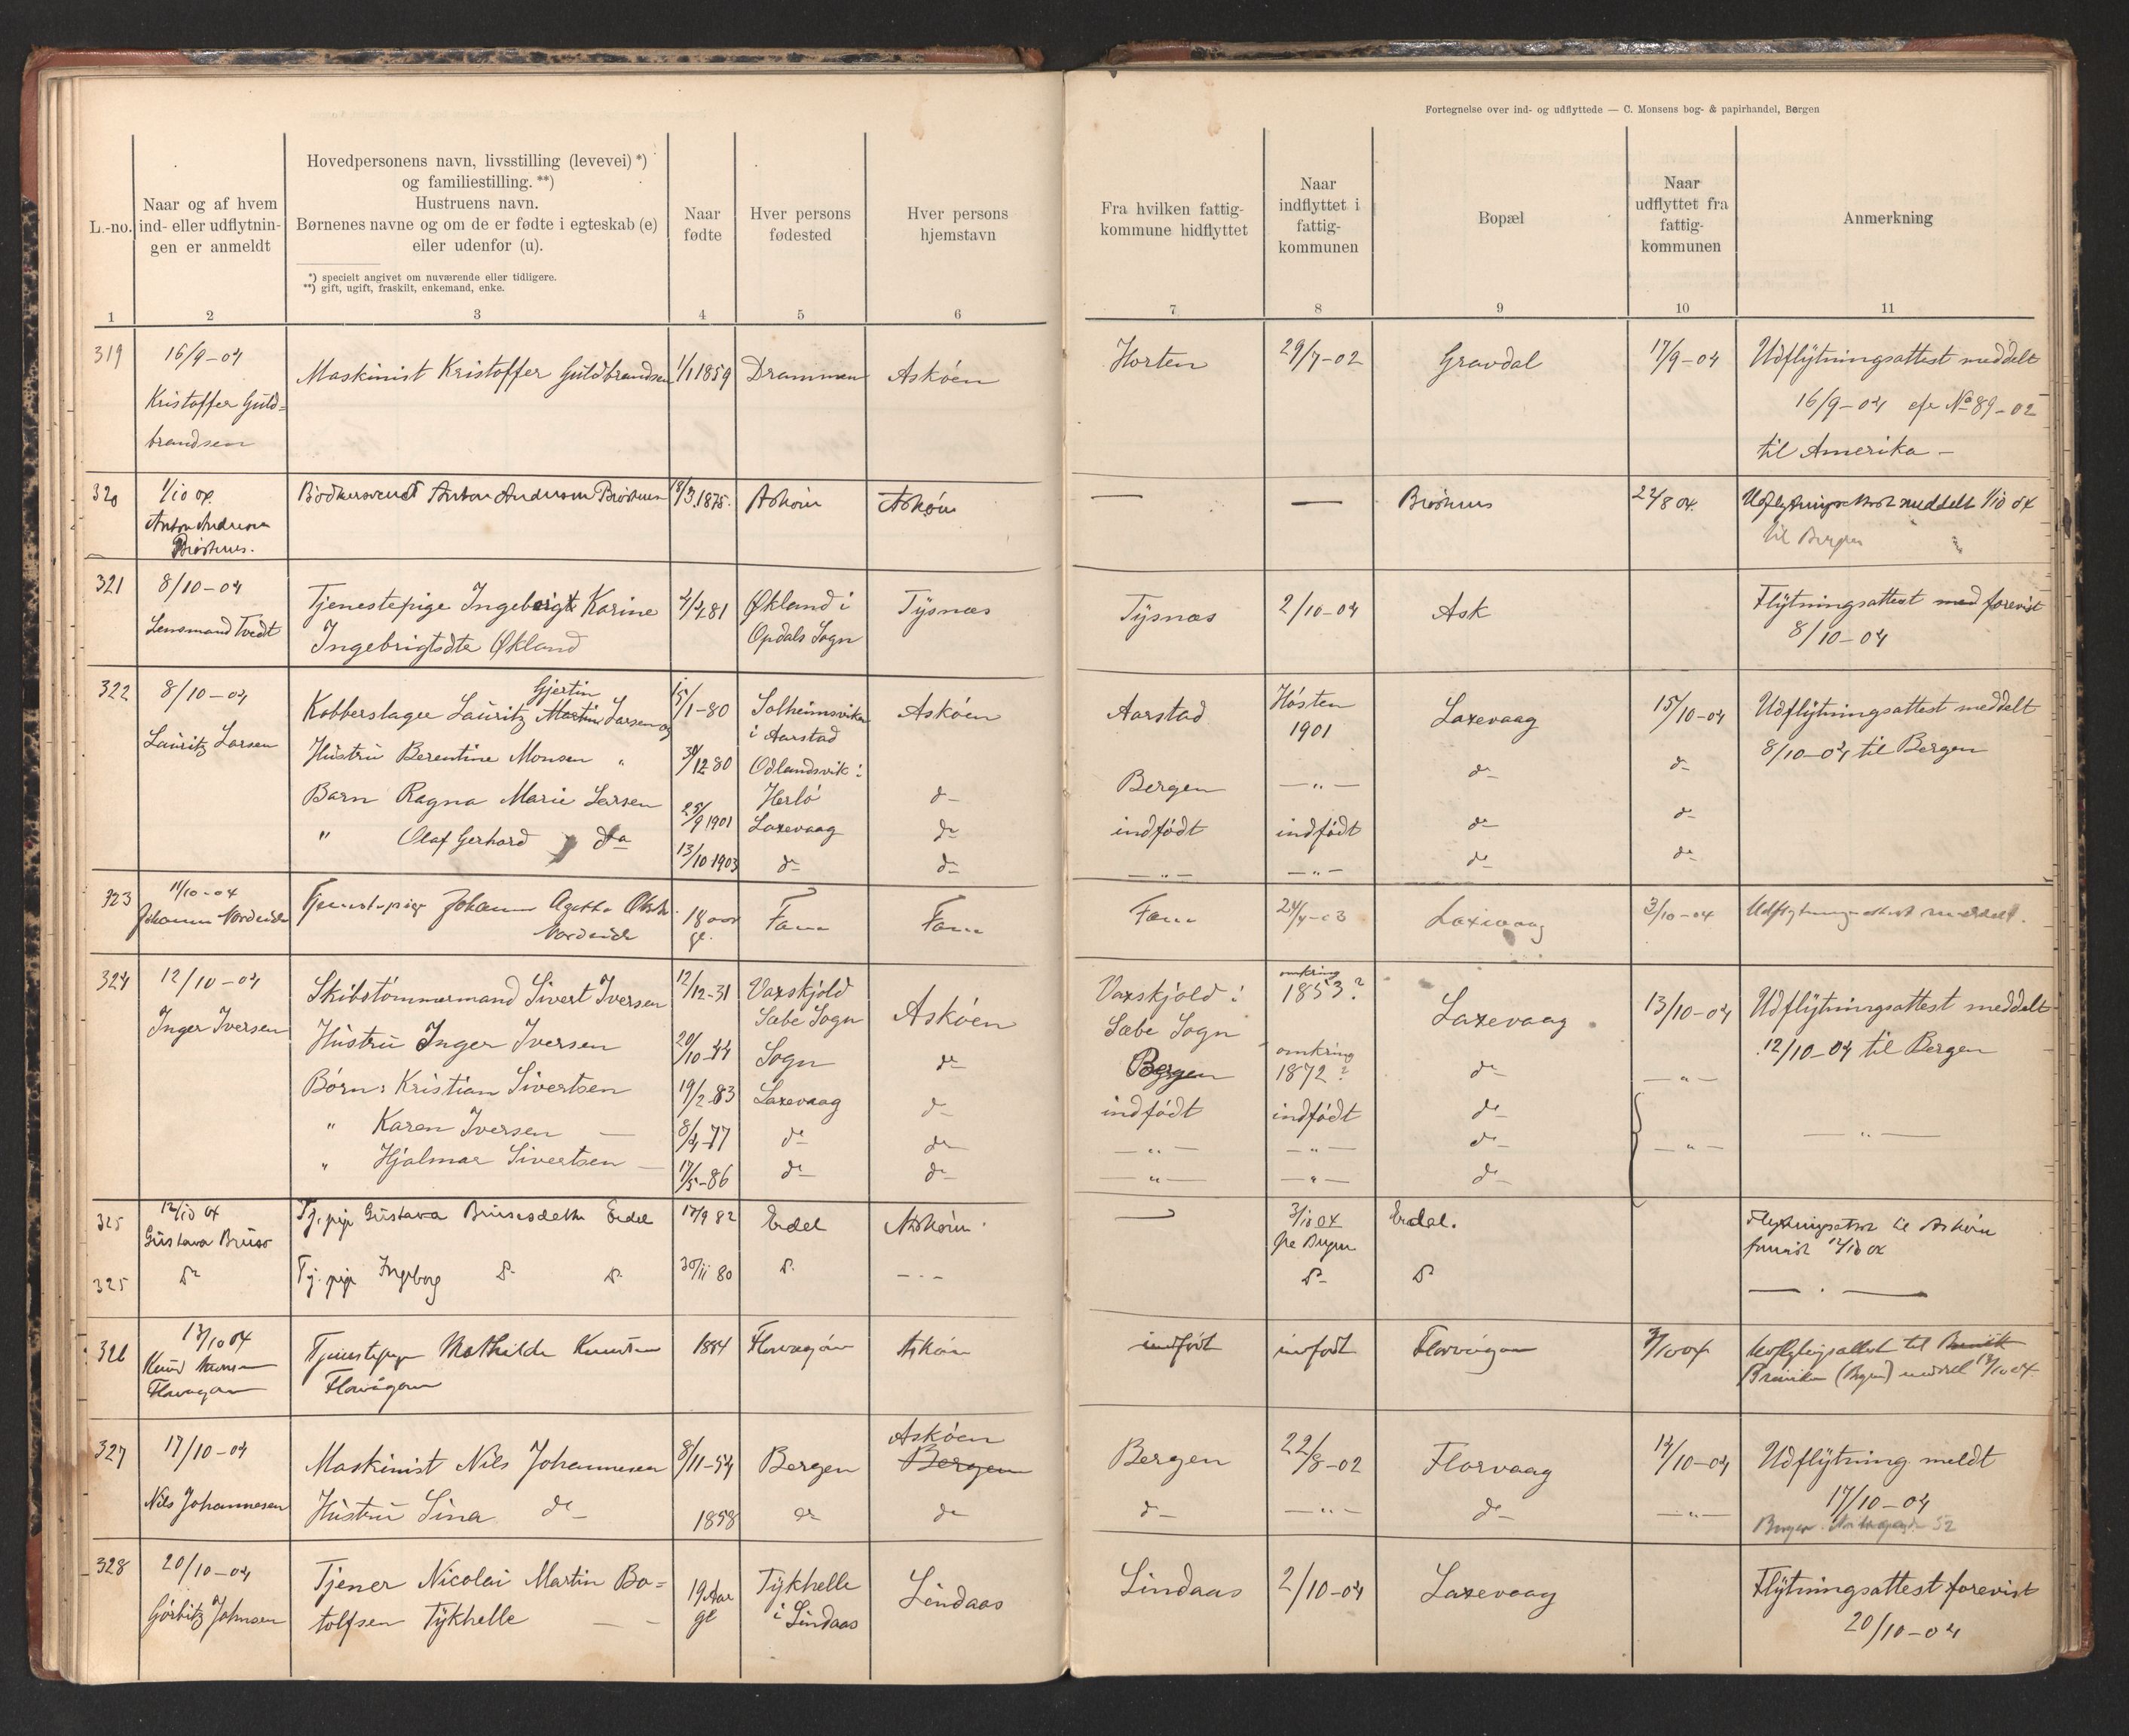 Fortegnelse over ind- og udflyttede — C. Monsens bog- & papirhandel, Bergen
L.-no.
Naar og af hvem
ind- eller udflytnin-
gen er anmeldt
Hovedpersonens navn, livsstilling (levevei) *)
og familiestilling. **)
Hustruens navn.
Børnenes navne og om de er fødte i egteskab (e)
eller udenfor (u).
*) specielt angivet om nuværende eller tidligere.
**) gift, ugift, fraskilt, enkemand, enke.
Naar
fødte
Hver persons
fødested
Hver persons
hjemstavn
Fra hvilken fattig-
kommune hidflyttet
Naar
indflyttet i
fattig-
kommunen
Bopæl
Naar
udflyttet fra
fattig-
kommunen
Anmerkning
1 2 3 4 5 6 7 8 9 10 11
319
16/9-04
Kristoffer Guld=
brandsen
Maskinist Kristoffer Guldbrandsen
1/1 1859
Drammen
Askøen
Horten
29/7-02
Gravdal
17/9-04
Udflytningsattest meddelt
16/9-04 cfr No 89-02
til Amerika -
320
1/10 04
Anton Andersen
18/3 1875.
Askøen
Askøen
—
—
22/8 04.
Udflytningsattest meddelt 1/10 04
til Bergen
321
8/10-04
Lensmand Tvedt
Tjenestepige Ingeborg Karine
Ingebrigtsdtr Økland
Økland i
Opdals Sogn
Tysnæs
Tysnæs
2/10-04
Ask
Flytningsattest med forevist
8/10-04
322
8/10-04
Lauritz Larsen
Gjertin
Kobberslager Lauritz Martin Larsen og
Hustru Berentine Monsen "
Barn Ragna Marie Larsen
" Olaf Gerhard do
15/1-80
30/12 80
25/9 1901
13/10 1903
Solheimsviken
i Aarstad
Odlandsvik i
Herlø
Laxevaag
do
Askøen
do
do
do
Aarstad
Bergen
indfødt
— " —
Høsten
1901
— " —
indfødt
— " —
Laxevaag
do
do
do
15/10-04
do
do
do
Udflytningsattest meddelt
8/10-04 til Bergen
323
11/10-04
Johanne Nordeide
Tjenestepige Johanne Agathe
Nordeide
18 aar
gl.
Fane
Fane
Fane
24/4-03
Laxevaag
3/10-04
Udflytningsattest meddelt.
324
12/10-04
Inger Iversen
Skibstømmermand Sivert Iversen
Hustru Inger Iversen
Børn: Kristian Sivertsen
" Karen Iversen —
" Hjalmar Sivertsen —
12/12-31
20/10-44
19/2-83
8/4-77
17/5-86
Vaxskjold
Sæbe Sogn
Sogn
Laxevaag
do
do
Askøen
do
do
do
do
Vaxskjold i
Sæbe Sogn
Bergen
indfødt
— " —
— " —
omkring
1853?
omkring
1872?
indfødt
— " —
— " —
Laxevaag
do
do
do
do
13/10-04
— " —
— " —
Udflytningsattest meddelt
12/10-04 til Bergen
— " —
325
12/10 04
Gustava
Tj. pige Gustava Erdal
17/9 82
Erdal
Askøen
—
3/10 04
fra Bergen
Erdal.
Flytningsattest til Askøen
forevist 12/10 04
325
do
Tj. pige Ingeborg do do
30/11 80
do
— " —
do
do
— " —
326
13/10 04
Knud
Florvaagen
Tjenestepige Mathilde Knudsen
Florvaagen
1884
Florvaagen
Askøen
indfødt
indfødt
Florvaagen
3/10 04
Udflytningsattest til
(Bergen) meddelt 13/10 04
327
17/10-04
Nils Johannesen
Maskinist Nils Johannesen
Hustru Sina do
8/11-54
1858
Bergen
do
Askøen
Bergen
do
Bergen
do
22/8-02
— " —
Florvaag
do
14/10-04
— " —
Udflytning meldt
17/10-04
Bergen 52
328
20/10-04
Gørbitz Johnsen
Tjener Nicolai Martin Bo=
tolfsen Tykhelle — —
19 Aar
gl
Tykhelle
i Lindaas
Lindaas
Lindaas
2/10-04
Laxevaag
Flytningsattest forevist
20/10-04